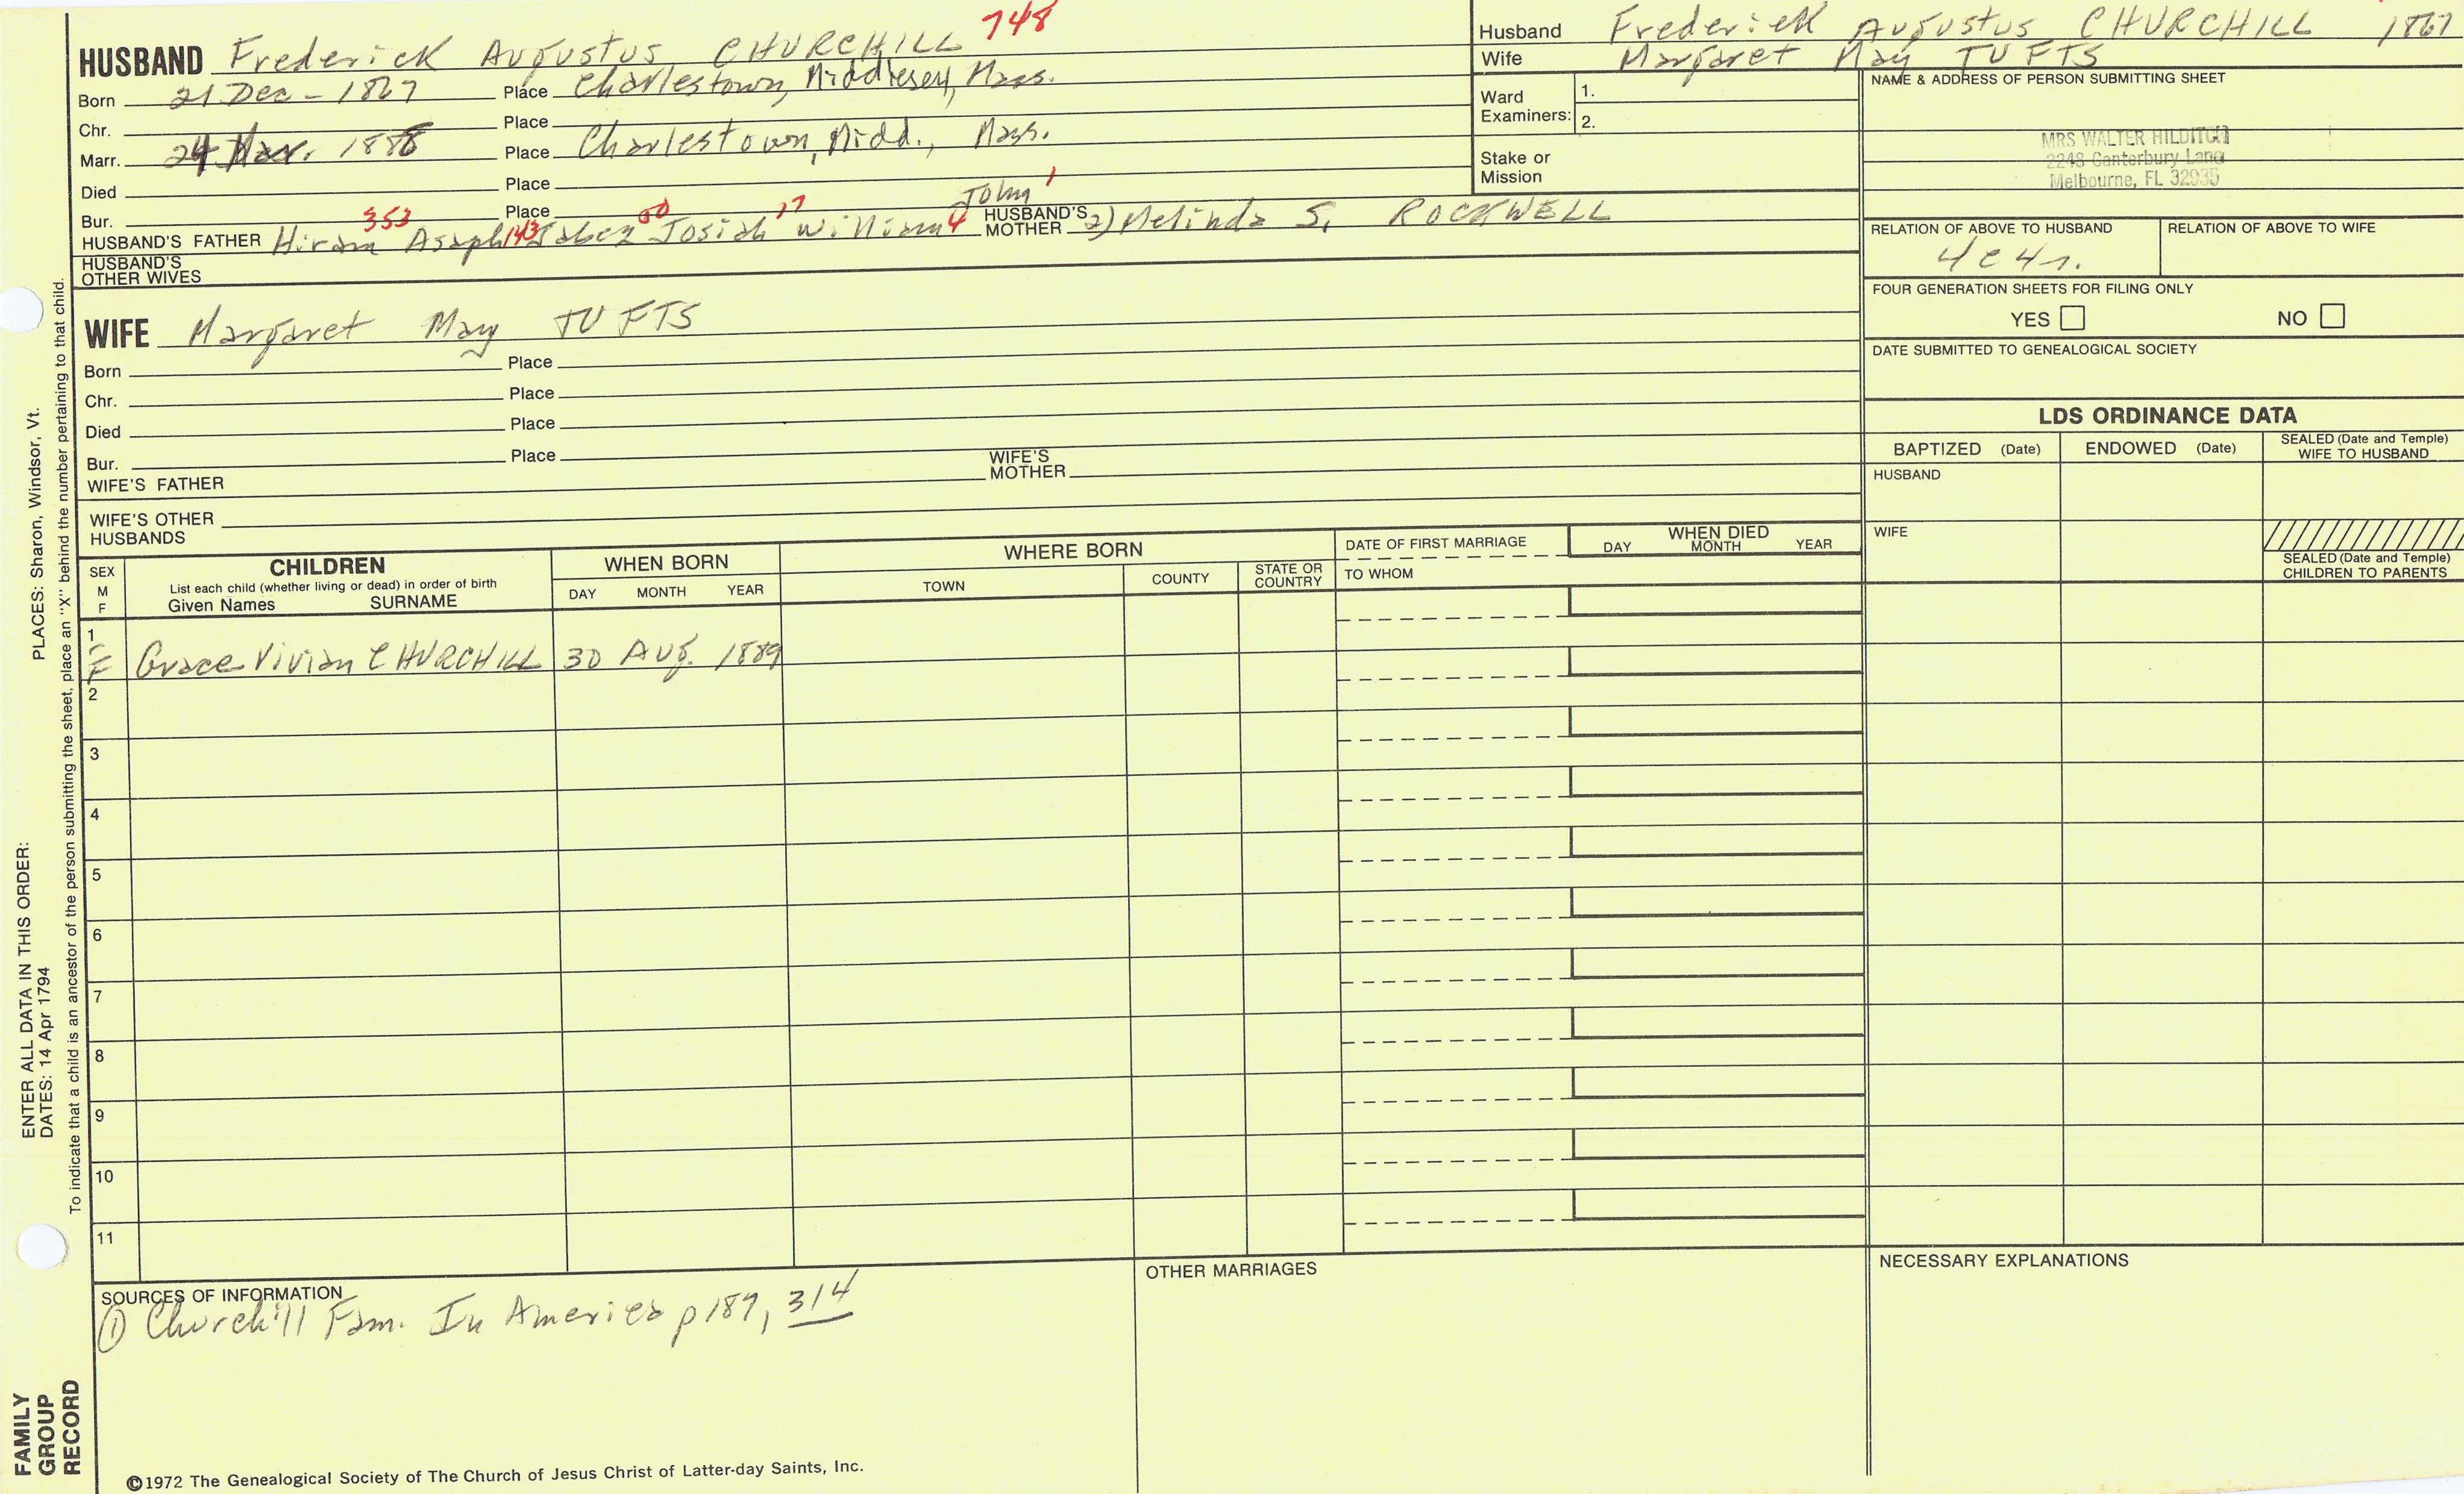 HUSBAND Frederick Augustus CHURCHILL 748
Born 21 Dec - 1867 Place Charlestown, Middlesex, Mass.
Chr. Place
Marr. 24 Mar. 1888 Place Charlestown, Midd., Mass.
Died Place
Bur. Place
HUSBAND'S FATHER Hiram 353 Asaph 143 Jabez 50 Josiah 17 William 4 John 1 HUSBAND'S MOTHER 2) Melinda S. ROCKWELL
HUSBAND'S OTHER WIVES
Husband Frederick Augustus CHURCHILL 1867
Wife Margaret May TUFTS
Ward Examiners: 1.
2.
Stake or Mission
NAME & ADDRESS OF PERSON SUBMITTING SHEET
MRS WALTER HILDITCH
2248 Canterbury Lane
Melbourne, FL 32935
RELATION OF ABOVE TO HUSBAND RELATION OF ABOVE TO WIFE
4c4r.
FOUR GENERATION SHEETS FOR FILING ONLY
YES NO
DATE SUBMITTED TO GENEALOGICAL SOCIETY
WIFE Margaret May TUFTS
Born Place
Chr. Place
Died Place
Bur. Place
WIFE'S FATHER WIFE'S MOTHER
WIFE'S OTHER HUSBANDS
LDS ORDINANCE DATA
BAPTIZED (Date) ENDOWED (Date) SEALED (Date and Temple) WIFE TO HUSBAND
HUSBAND
WIFE
SEALED (Date and Temple) CHILDREN TO PARENTS
SEX M F
CHILDREN
List each child (whether living or dead) in order of birth
Given Names SURNAME
WHEN BORN
DAY MONTH YEAR
WHERE BORN
TOWN COUNTY STATE OR COUNTRY
DATE OF FIRST MARRIAGE
TO WHOM
WHEN DIED
DAY MONTH YEAR
1
F Grace Vivian CHURCHILL 30 AUG. 1889
2
3
4
5
6
7
8
9
10
11
SOURCES OF INFORMATION
① Churchill Fam. In America p 187, 314
OTHER MARRIAGES
NECESSARY EXPLANATIONS
©1972 The Genealogical Society of The Church of Jesus Christ of Latter-day Saints, Inc.
FAMILY GROUP RECORD
ENTER ALL DATA IN THIS ORDER:
DATES: 14 Apr 1794 PLACES: Sharon, Windsor, Vt.
To indicate that a child is an ancestor of the person submitting the sheet, place an "X" behind the number pertaining to that child.